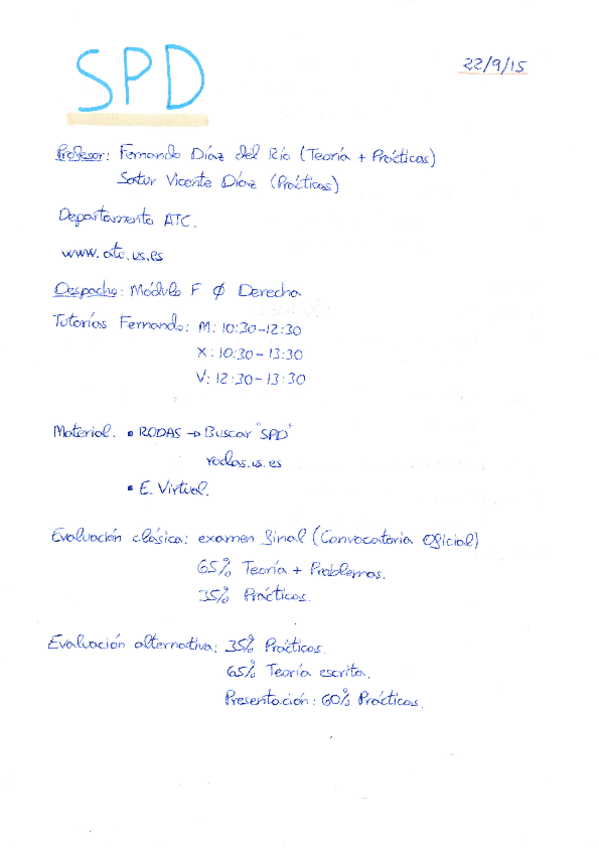 SPD
22/9/15
Profesor: Fernando Díaz del Río (Teoría + Prácticas)
Satur Vicente Díaz (Prácticas)
Departamento ATC.
www.atc.us.es
Despacho: Módulo F Ø Derecha
Tutorías Fernando: M: 10:30-12:30
X: 10:30-13:30
V: 12:30-13:30
Material. • RODAS → Buscar "SPD"
rodas.us.es
• E. Virtual.
Evaluación clásica: examen final (Convocatoria Oficial)
65% Teoría + Problemas.
35% Prácticas.
Evaluación alternativa: 35% Prácticas.
65% Teoría escrita.
Presentación: 60% Prácticas.